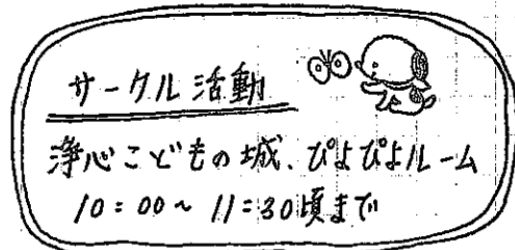 サークル活動
浄心こどもの城、ぴよぴよルーム
10:00～11:30頃まで